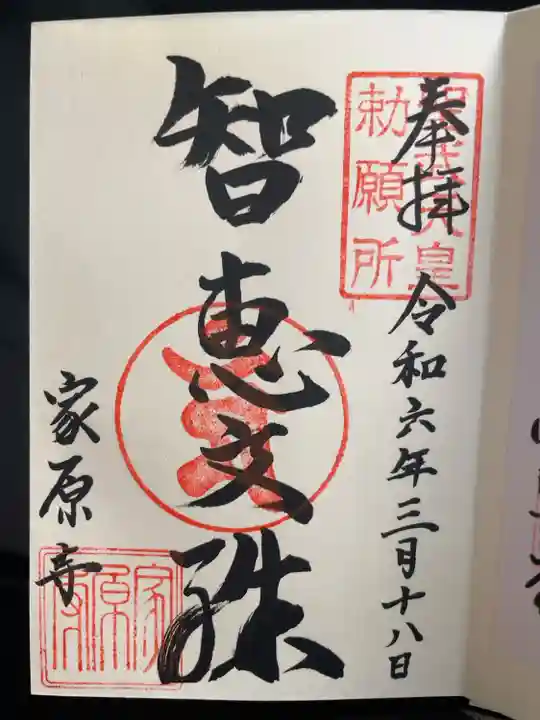 奉拝
令和六年三月十八日
聖武天皇
勅願所
智恵文殊
家原寺
家原寺